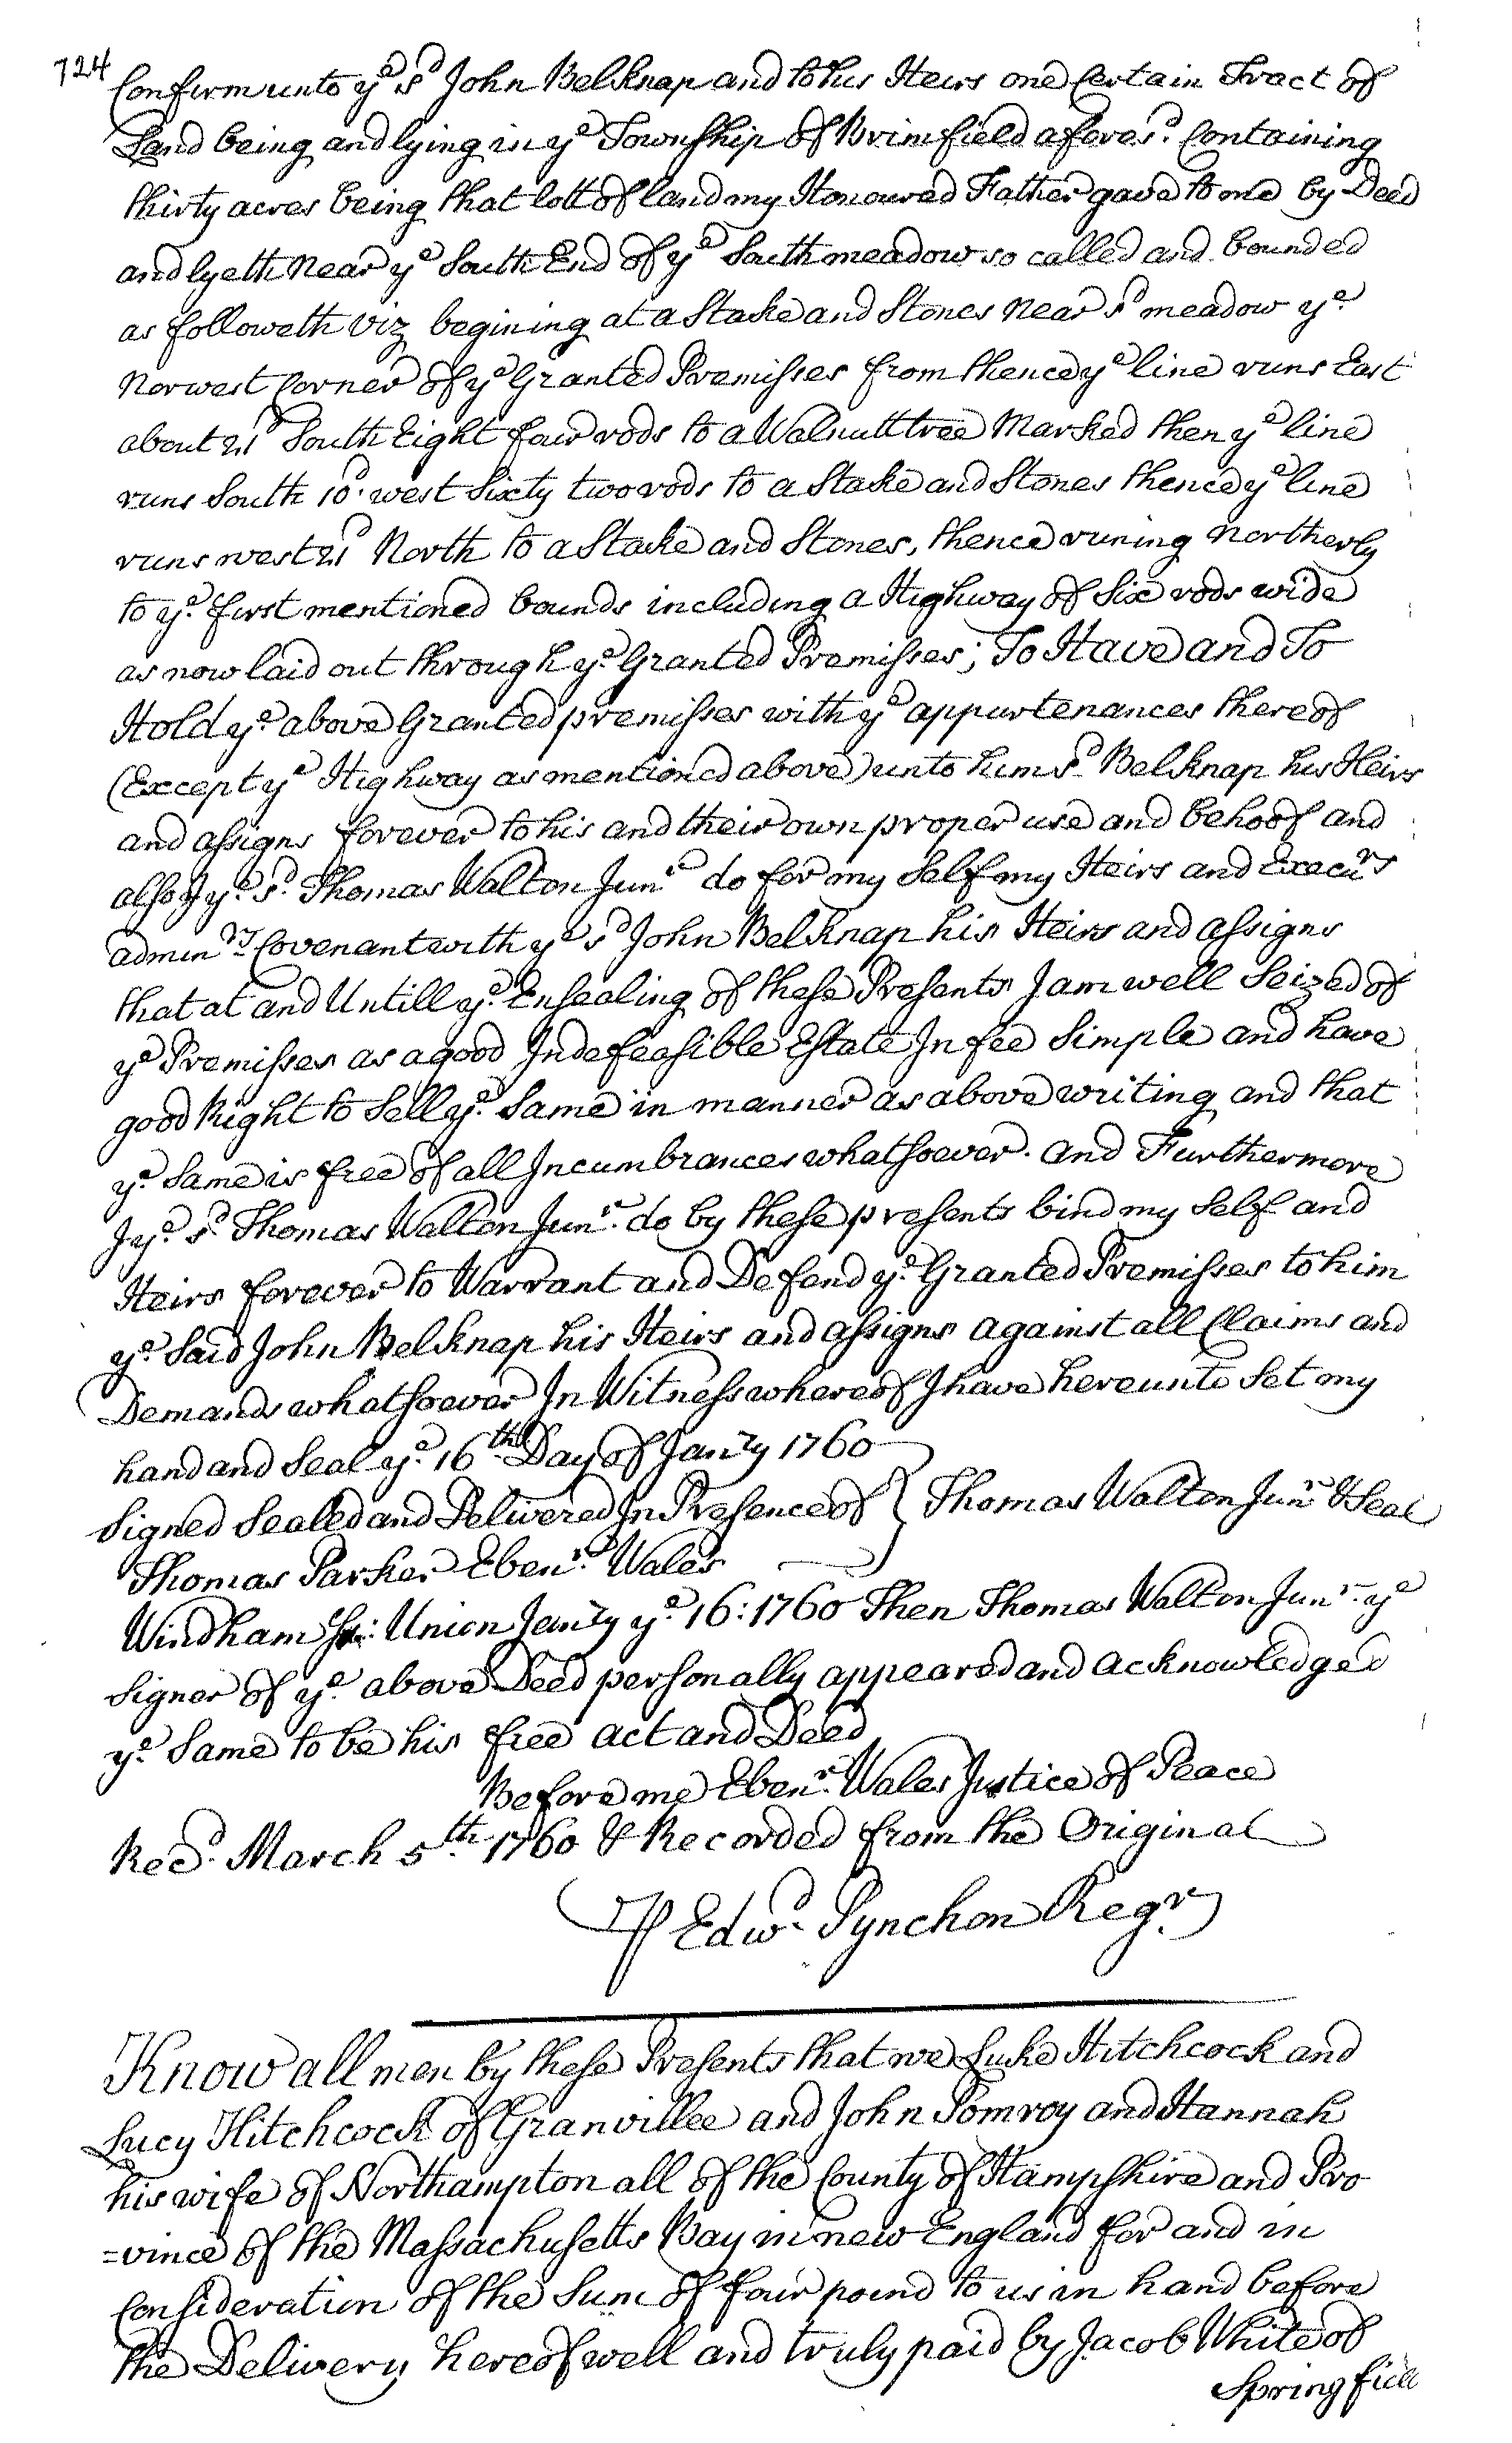 724
Confirm unto ye sd John Belknap and to his Heirs one Certain Tract of
Land being and lying in ye Township of Brimfield aforesd. Containing
thirty acres being that lott of land my Honoured Father gave to me by Deed
and lyeth Near ye South End of ye South meadow so called and bounded
as followeth viz begining at a Stake and Stones Near sd meadow ye
Norwest Corner of ye Granted Premisses from thence ye line runs East
about 21d South Eight four rods to a Walnutt tree Marked then ye line
runs South 10d. west Sixty two rods to a Stake and Stones thence ye line
runs west 21d North to a Stake and Stones, thence runing Northerly
to ye first mentioned bounds including a Highway of Six rods wide
as now laid out through ye Granted Premisses; To Have and To
Hold ye above Granted premisses with ye appurtenances thereof
(Except ye Highway as mentioned above) unto him sd Belknap his Heirs
and assigns forever to his and their own proper use and behoof and
also I ye sd. Thomas Walton Junr do for my Self my Heirs and Execurs
adminrs Covenant with ye sd John Belknap his Heirs and assigns
that at and Untill ye Ensealing of these Presents I am well Seized of
ye Premisses as a good Indefeasible Estate In fee Simple and have
good Right to Sell ye Same in manner as above writing and that
ye Same is free of all Incumbrances whatsoever. and Furthermore
I ye sd Thomas Walton Junr. do by these presents bind my Self and
Heirs forever to Warrant and Defend ye Granted Premisses to him
ye Said John Belknap his Heirs and assigns against all Claims and
Demands whatsoever In Witness whereof I have hereunto Set my
hand and Seal ye 16th Day of Janry 1760
Signed Sealed and Delivered In Presence of } Thomas Walton Junr & Seal
Thomas Parker Ebenr. Wales
Windham Ss: Union Janry ye 16: 1760 Then Thomas Walton Junr. ye
Signer of ye above Deed personally appeared and acknowledged
ye Same to be his free act and Deed
Before me Ebenr. Wales Justice of Peace
Recd. March 5th 1760 & Recorded from the Original
P Edwd Pynchon Regr
Know all men by these Presents that we Luke Hitchcock and
Lucy Hitchcock of Granvillee and John Pomroy and Hannah
his wife of Northampton all of the County of Hampshire and Pro
=vince of the Massachusetts Bay in new England for and in
Consideration of the Sum of four pound to us in hand before
the Delivery hereof well and truly paid by Jacob White of
Springfield